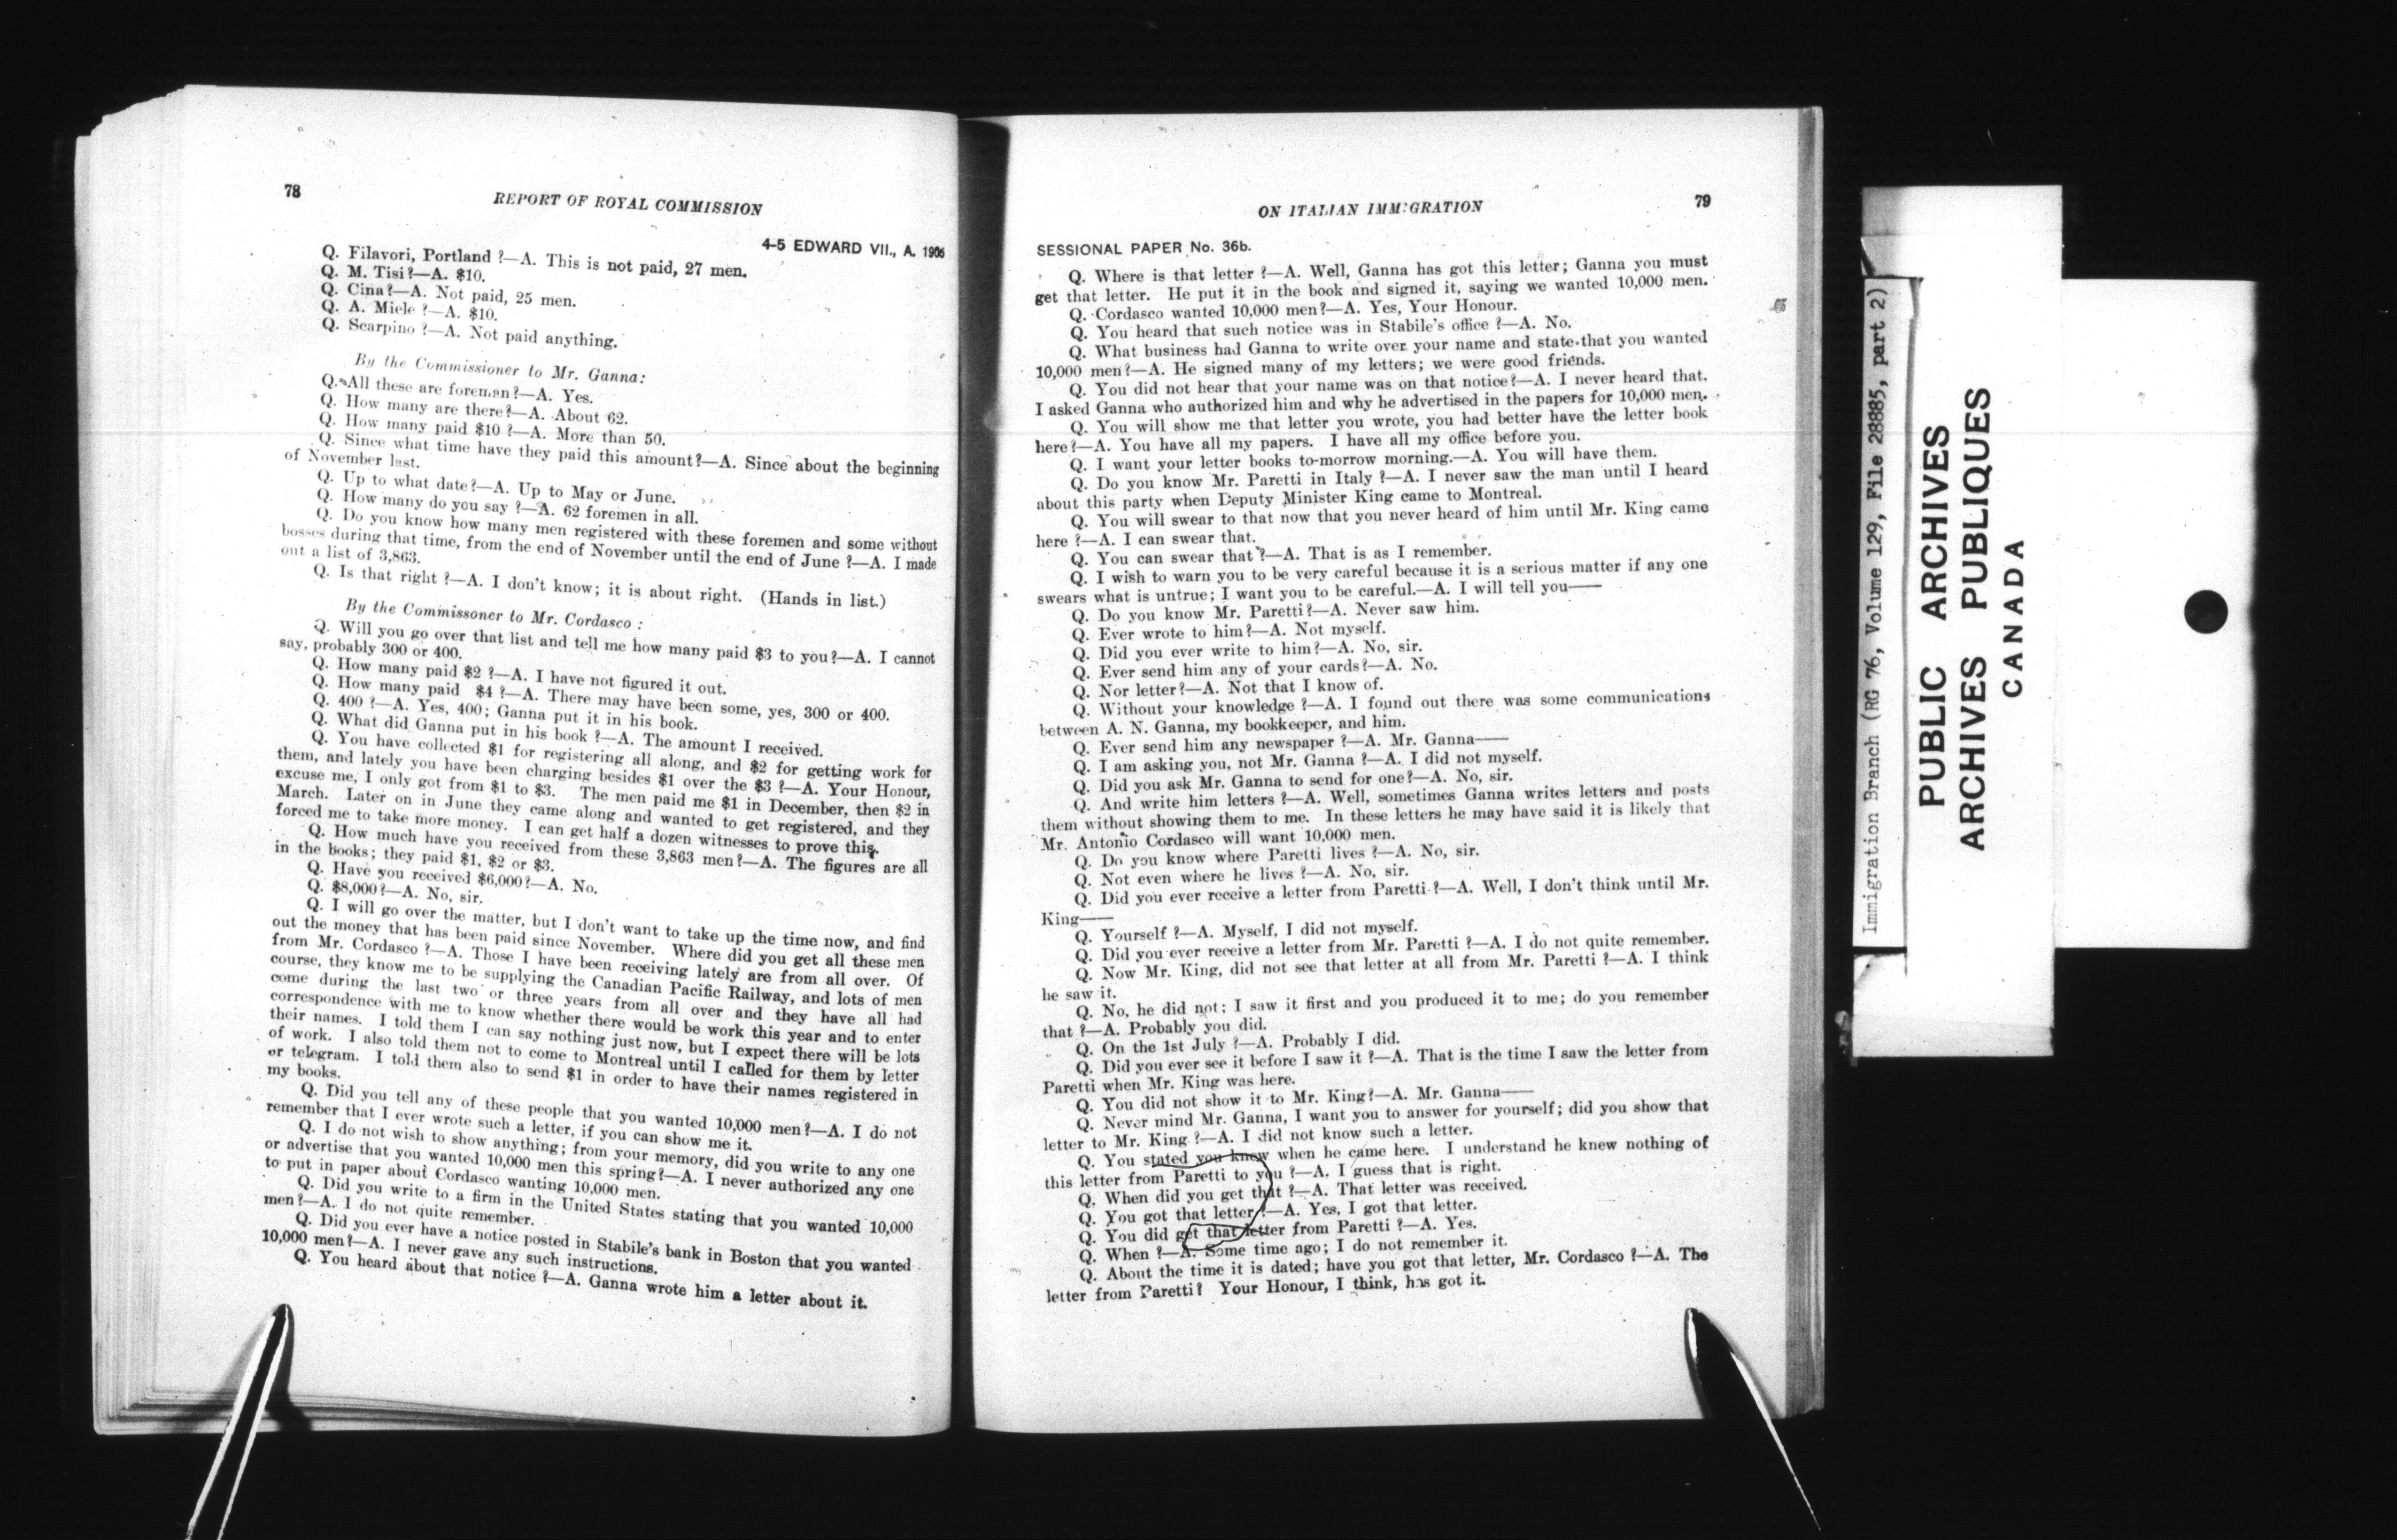 78
REPORT OF ROYAL COMMISSION
4-5 EDWARD VII., A. 1905
Q. Filavori, Portland ?—A. This is not paid, 27 men.
Q. M. Tisi?—A. $10.
Q. Cina?—A. Not paid, 25 men.
Q. A. Miele ?—A. $10.
Q. Scarpino ?—A. Not paid anything.
By the Commissioner to Mr. Ganna:
Q. All these are foremen?—A. Yes.
Q. How many are there?—A. About 62.
Q. How many paid $10 ?—A. More than 50.
Q. Since what time have they paid this amount?—A. Since about the beginning
of November last.
Q. Up to what date?—A. Up to May or June.
Q. How many do you say ?—A. 62 foremen in all.
Q. Do you know how many men registered with these foremen and some without
bosses during that time, from the end of November until the end of June ?—A. I made
out a list of 3,863.
Q. Is that right ?—A. I don't know; it is about right. (Hands in list.)
By the Commissoner to Mr. Cordasco :
Q. Will you go over that list and tell me how many paid $3 to you?—A. I cannot
say, probably 300 or 400.
Q. How many paid $2 ?—A. I have not figured it out.
Q. How many paid $4 ?—A. There may have been some, yes, 300 or 400.
Q. 400 ?—A. Yes, 400; Ganna put it in his book.
Q. What did Ganna put in his book ?—A. The amount I received.
Q. You have collected $1 for registering all along, and $2 for getting work for
them, and lately you have been charging besides $1 over the $3 ?—A. Your Honour,
excuse me, I only got from $1 to $3. The men paid me $1 in December, then $2 in
March. Later on in June they came along and wanted to get registered, and they
forced me to take more money. I can get half a dozen witnesses to prove this.
Q. How much have you received from these 3,863 men?—A. The figures are all
in the books; they paid $1, $2 or $3.
Q. Have you received $6,000?—A. No.
Q. $8,000?—A. No, sir.
Q. I will go over the matter, but I don't want to take up the time now, and find
out the money that has been paid since November. Where did you get all these men
from Mr. Cordasco ?—A. Those I have been receiving lately are from all over. Of
course, they know me to be supplying the Canadian Pacific Railway, and lots of men
come during the last two or three years from all over and they have all had
correspondence with me to know whether there would be work this year and to enter
their names. I told them I can say nothing just now, but I expect there will be lots
of work. I also told them not to come to Montreal until I called for them by letter
or telegram. I told them also to send $1 in order to have their names registered in
my books.
Q. Did you tell any of these people that you wanted 10,000 men?—A. I do not
remember that I ever wrote such a letter, if you can show me it.
Q. I do not wish to show anything; from your memory, did you write to any one
or advertise that you wanted 10,000 men this spring?—A. I never authorized any one
to put in paper about Cordasco wanting 10,000 men.
Q. Did you write to a firm in the United States stating that you wanted 10,000
men?—A. I do not quite remember.
Q. Did you ever have a notice posted in Stabile's bank in Boston that you wanted
10,000 men?—A. I never gave any such instructions.
Q. You heard about that notice ?—A. Ganna wrote him a letter about it.
ON ITALIAN IMMIGRATION
79
SESSIONAL PAPER No. 36b.
Q. Where is that letter ?—A. Well, Ganna has got this letter; Ganna you must
get that letter. He put it in the book and signed it, saying we wanted 10,000 men.
Q. Cordasco wanted 10,000 men?—A. Yes, Your Honour.
Q. You heard that such notice was in Stabile's office ?—A. No.
Q. What business had Ganna to write over your name and state that you wanted
10,000 men?—A. He signed many of my letters; we were good friends.
Q. You did not hear that your name was on that notice?—A. I never heard that.
I asked Ganna who authorized him and why he advertised in the papers for 10,000 men.
Q. You will show me that letter you wrote, you had better have the letter book
here?—A. You have all my papers. I have all my office before you.
Q. I want your letter books to-morrow morning.—A. You will have them.
Q. Do you know Mr. Paretti in Italy ?—A. I never saw the man until I heard
about this party when Deputy Minister King came to Montreal.
Q. You will swear to that now that you never heard of him until Mr. King came
here ?—A. I can swear that.
Q. You can swear that ?—A. That is as I remember.
Q. I wish to warn you to be very careful because it is a serious matter if any one
swears what is untrue; I want you to be careful.—A. I will tell you——
Q. Do you know Mr. Paretti?—A. Never saw him.
Q. Ever wrote to him?—A. Not myself.
Q. Did you ever write to him?—A. No, sir.
Q. Ever send him any of your cards?—A. No.
Q. Nor letter?—A. Not that I know of.
Q. Without your knowledge ?—A. I found out there was some communications
between A. N. Ganna, my bookkeeper, and him.
Q. Ever send him any newspaper ?—A. Mr. Ganna——
Q. I am asking you, not Mr. Ganna ?—A. I did not myself.
Q. Did you ask Mr. Ganna to send for one?—A. No, sir.
Q. And write him letters ?—A. Well, sometimes Ganna writes letters and posts
them without showing them to me. In these letters he may have said it is likely that
Mr. Antonio Cordasco will want 10,000 men.
Q. Do you know where Paretti lives ?—A. No, sir.
Q. Not even where he lives ?—A. No, sir.
Q. Did you ever receive a letter from Paretti ?—A. Well, I don't think until Mr.
King——
Q. Yourself ?—A. Myself, I did not myself.
Q. Did you ever receive a letter from Mr. Paretti ?—A. I do not quite remember.
Q. Now Mr. King, did not see that letter at all from Mr. Paretti ?—A. I think
he saw it.
Q. No, he did not; I saw it first and you produced it to me; do you remember
that ?—A. Probably you did.
Q. On the 1st July ?—A. Probably I did.
Q. Did you ever see it before I saw it ?—A. That is the time I saw the letter from
Paretti when Mr. King was here.
Q. You did not show it to Mr. King?—A. Mr. Ganna——
Q. Never mind Mr. Ganna, I want you to answer for yourself; did you show that
letter to Mr. King ?—A. I did not know such a letter.
Q. You stated you knew when he came here. I understand he knew nothing of
this letter from Paretti to you ?—A. I guess that is right.
Q. When did you get that ?—A. That letter was received.
Q. You got that letter ?—A. Yes, I got that letter.
Q. You did get that letter from Paretti ?—A. Yes.
Q. When ?—A. Some time ago; I do not remember it.
Q. About the time it is dated; have you got that letter, Mr. Cordasco ?—A. The
letter from Paretti? Your Honour, I think, has got it.
Immigration Branch (RG 76, Volume 129, File 28885, part 2)
PUBLIC ARCHIVES
ARCHIVES PUBLIQUES
CANADA